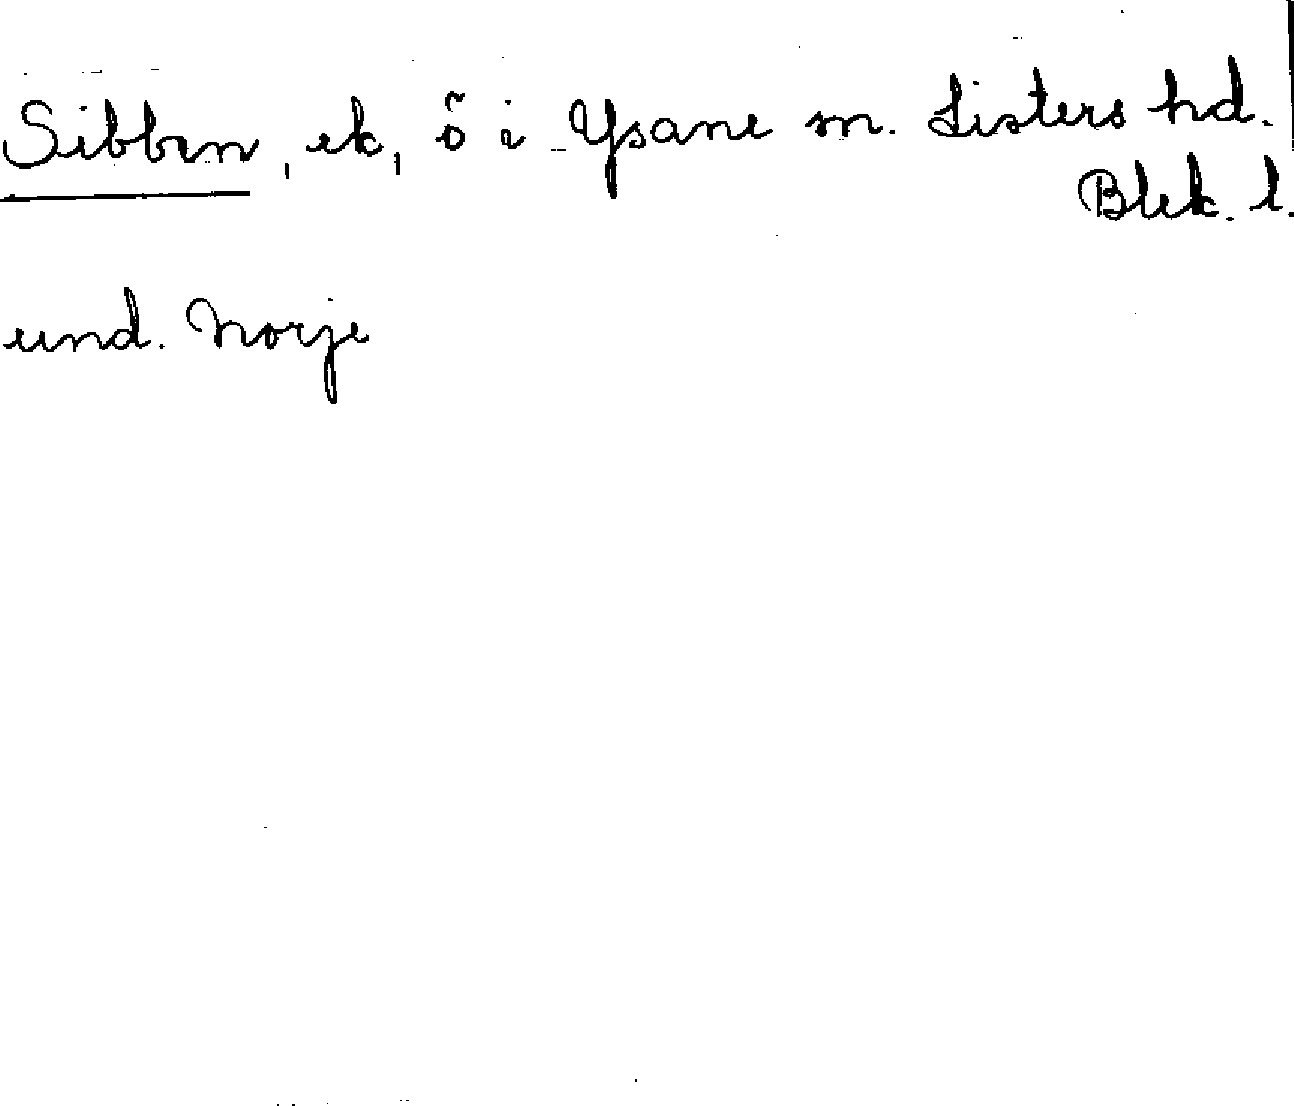 Sibben, ek, ö i Ysane sn. Listers hd.
Blek. l.
und. Norje